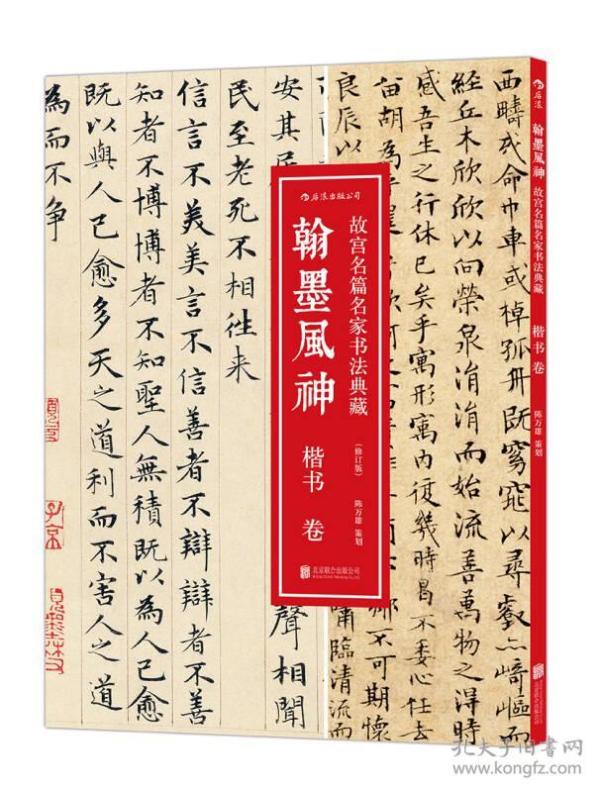 后浪出版公司
故宫名篇名家书法典藏
翰墨風神
（修订版）
楷书 卷
陈万雄 策划
北京联合出版公司
后浪
翰墨風神
故宫名篇名家书法典藏
楷书 卷
陈万雄 策划
北京联合出版公司
西疇或命巾車或棹孤舟既窈窕以尋壑亦崎嶇而
經丘木欣欣以向榮泉涓涓而始流善萬物之得時
感吾生之行休已矣乎寓形寓內復幾時曷不委心任去
留胡為
不可期懷
良辰以
嘯臨清流而
安其居
聲相聞
民至老死不相往来
信言不美美言不信善者不辯辯者不善
知者不博博者不知聖人無積既以為人己愈
既以與人己愈多天之道利而不害人之道
為而不争
孔夫子旧书网
www.kongfz.com